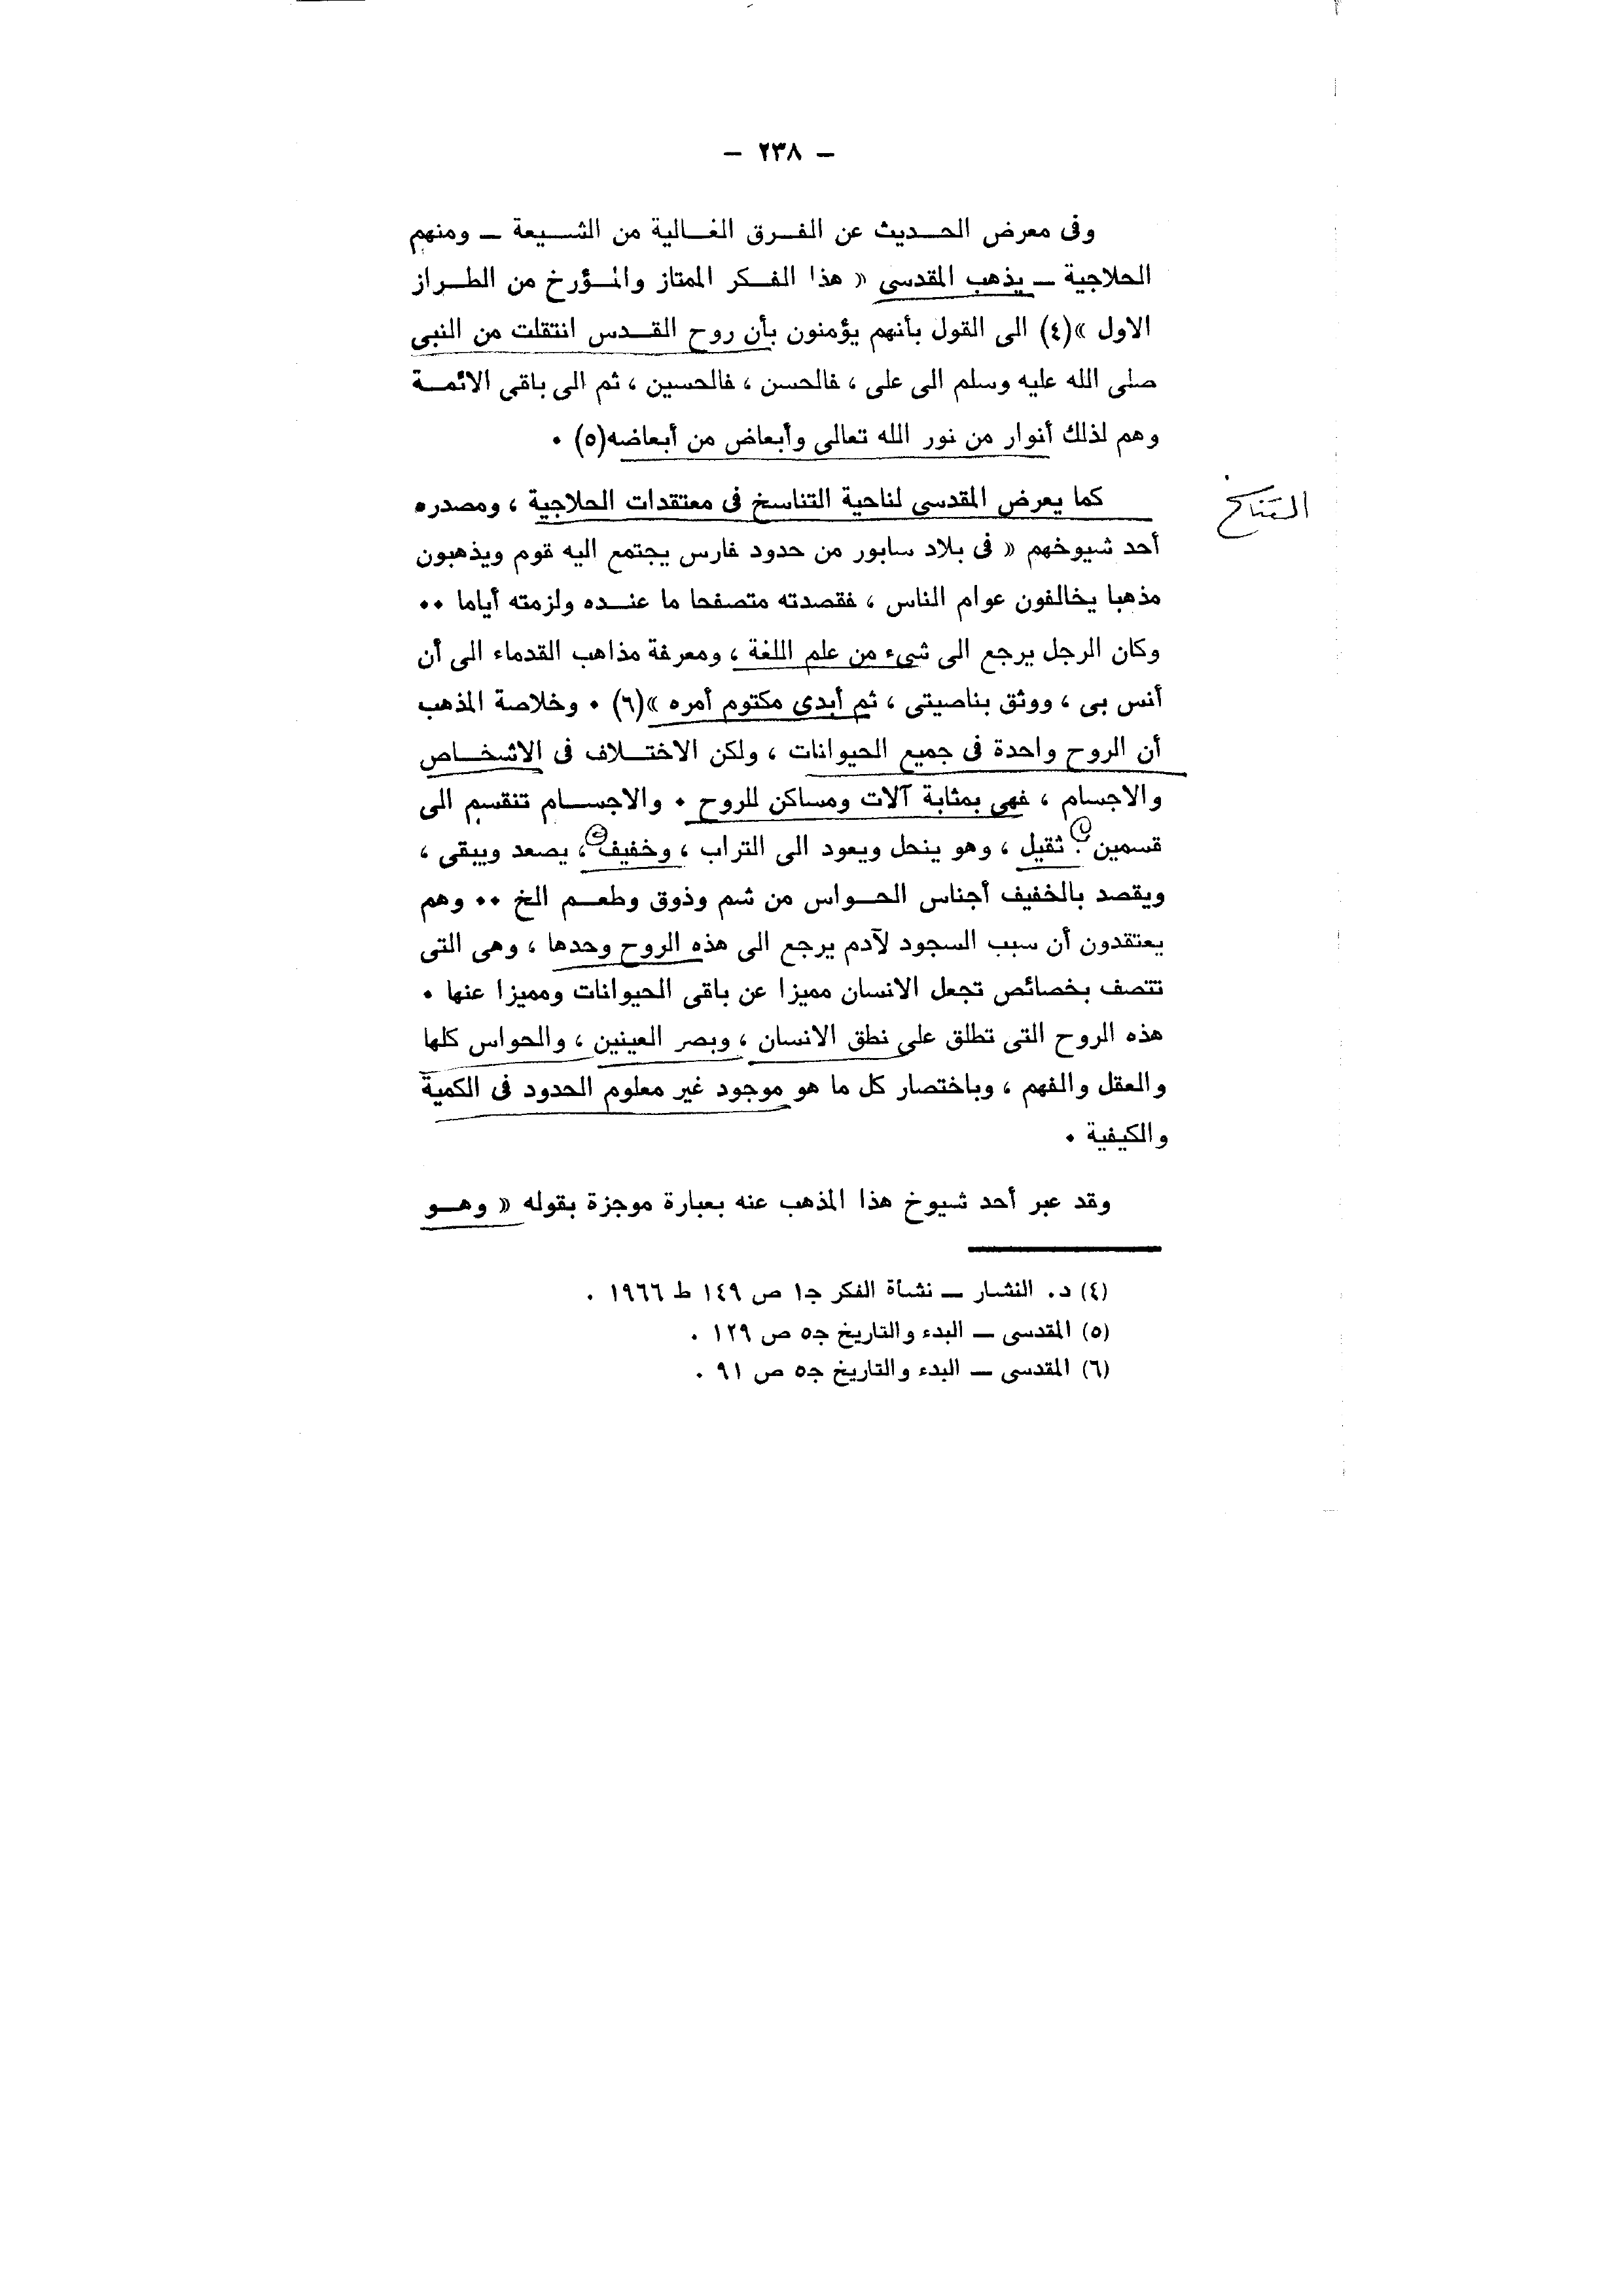 — ٢٣٨ —
وفى معرض الحديث عن الفرق الغالية من الشيعة — ومنهم
الحلاجية — يذهب المقدسى « هذا الفكر الممتاز والمؤرخ من الطراز
الاول »(٤) الى القول بأنهم يؤمنون بأن روح القدس انتقلت من النبى
صلى الله عليه وسلم الى على ، فالحسن ، فالحسين ، ثم الى باقى الائمة
وهم لذلك أنوار من نور الله تعالى وأبعاض من أبعاضه(٥) .
كما يعرض المقدسى لناحية التناسخ فى معتقدات الحلاجية ، ومصدره
التناسخ
أحد شيوخهم « فى بلاد سابور من حدود فارس يجتمع اليه قوم ويذهبون
مذهبا يخالفون عوام الناس ، فقصدته متصفحا ما عنده ولزمته أياما ..
وكان الرجل يرجع الى شىء من علم اللغة ، ومعرفة مذاهب القدماء الى أن
أنس بى ، ووثق بناصيتى ، ثم أبدى مكتوم أمره »(٦) . وخلاصة المذهب
أن الروح واحدة فى جميع الحيوانات ، ولكن الاختلاف فى الاشخاص
والاجسام ، فهى بمثابة آلات ومساكن للروح . والاجسام تنقسم الى
قسمين : ثقيل ، وهو ينحل ويعود الى التراب ، وخفيف ، يصعد ويبقى ،
ويقصد بالخفيف أجناس الحواس من شم وذوق وطعم الخ .. وهم
يعتقدون أن سبب السجود لآدم يرجع الى هذه الروح وحدها ، وهى التى
تتصف بخصائص تجعل الانسان مميزا عن باقى الحيوانات ومميزا عنها .
هذه الروح التى تطلق على نطق الانسان ، وبصر العينين ، والحواس كلها
والعقل والفهم ، وباختصار كل ما هو موجود غير معلوم الحدود فى الكمية
والكيفية .
وقد عبر أحد شيوخ هذا المذهب عنه بعبارة موجزة بقوله « وهو
(٤) د. النشار — نشأة الفكر ج١ ص ١٤٩ ط ١٩٦٦ .
(٥) المقدسى — البدء والتاريخ ج٥ ص ١٢٩ .
(٦) المقدسى — البدء والتاريخ ج٥ ص ٩١ .